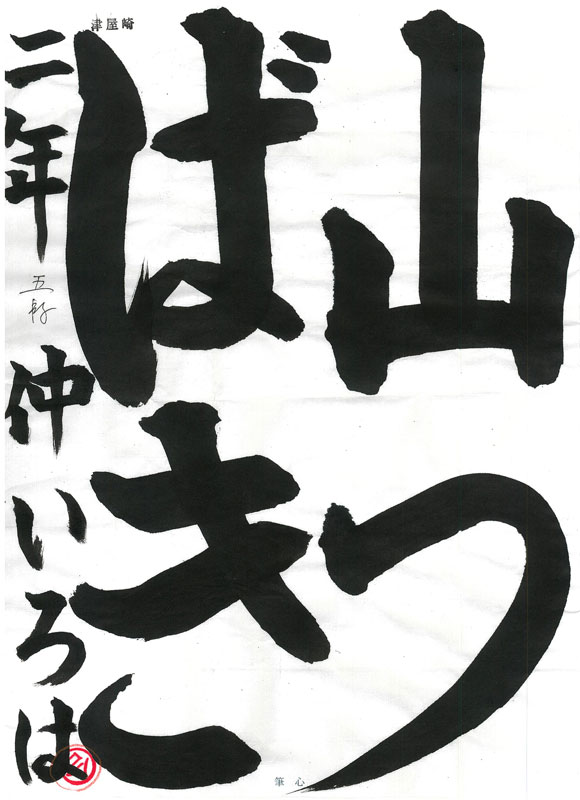 山つ
ばき
津屋崎
二年 仲いろは
心筆